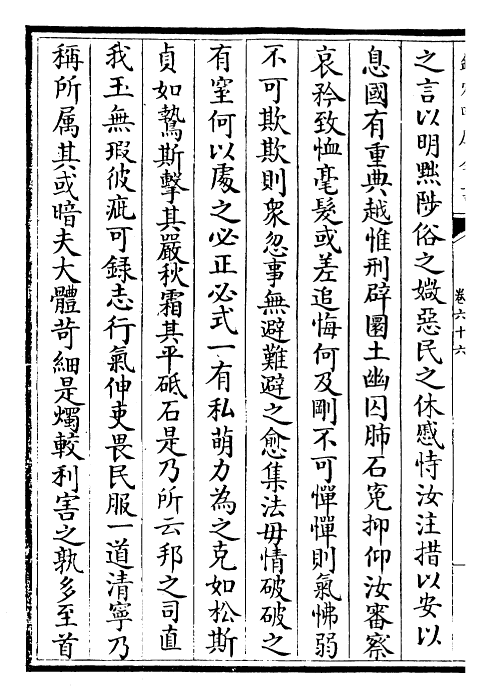 之言以明黜陟俗之媺惡民之休慼恃汝注措以安以
息國有重典越惟刑辟圜土幽囚肺石寃抑仰汝審察
哀矜致恤毫髮或差追悔何及剛不可憚憚則氣怫弱
不可欺欺則衆忽事無避難避之愈集法毋情破破之
有窒何以處之必正必式一有私萌力為之克如松斯
貞如鷙斯擊其嚴秋霜其平砥石是乃所云邦之司直
我玉無瑕彼疵可録志行氣伸吏畏民服一道清寧乃
稱所属其或暗夫大體苛細是燭較利害之孰多至首
卷六十六